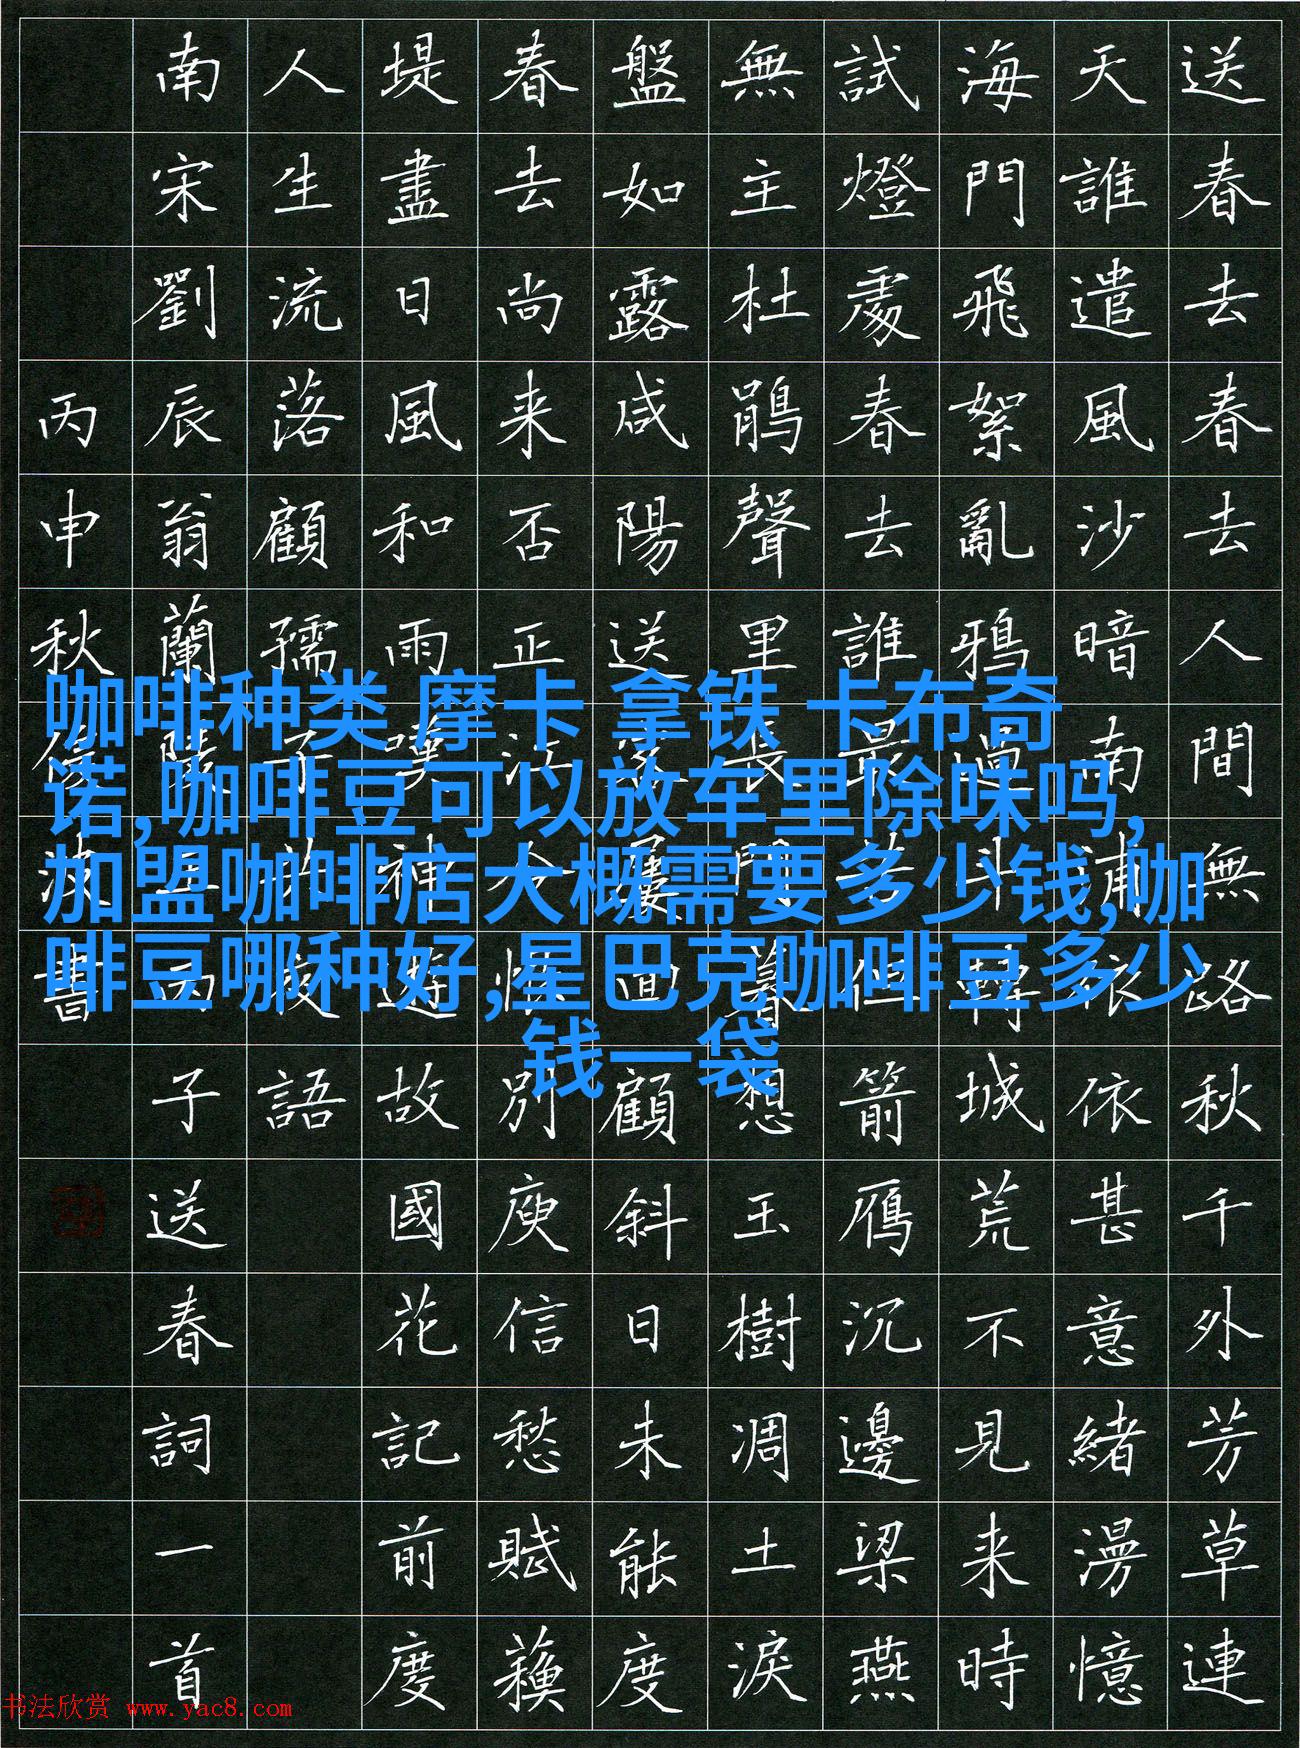 送春去春去人間無路秋千外芳草連
天誰遣風沙暗南浦依依甚意緒漫憶
海門飛絮亂鴉過斗轉城荒不見来時
試燈處春去誰最苦但箭鴈沉邊梁燕
無主杜鵑聲里長門暮想玉樹凋土淚
盤如露咸陽送客屢迴顧斜日未能度
春去尚来否正江令恨別庾信愁賦蘇
堤盡日風和雨嘆神遊故國花記前度
人生流落顧孺子共夜語
南宋劉辰翁蘭陵王丙子送春詞一首
丙申秋書
咖啡种类 摩卡 拿铁 卡布奇
诺,咖啡豆可以放车里除味吗,
加盟咖啡店大概需要多少钱,咖
啡豆哪种好,星巴克咖啡豆多少
钱一袋
书法欣赏 www.yac8.com